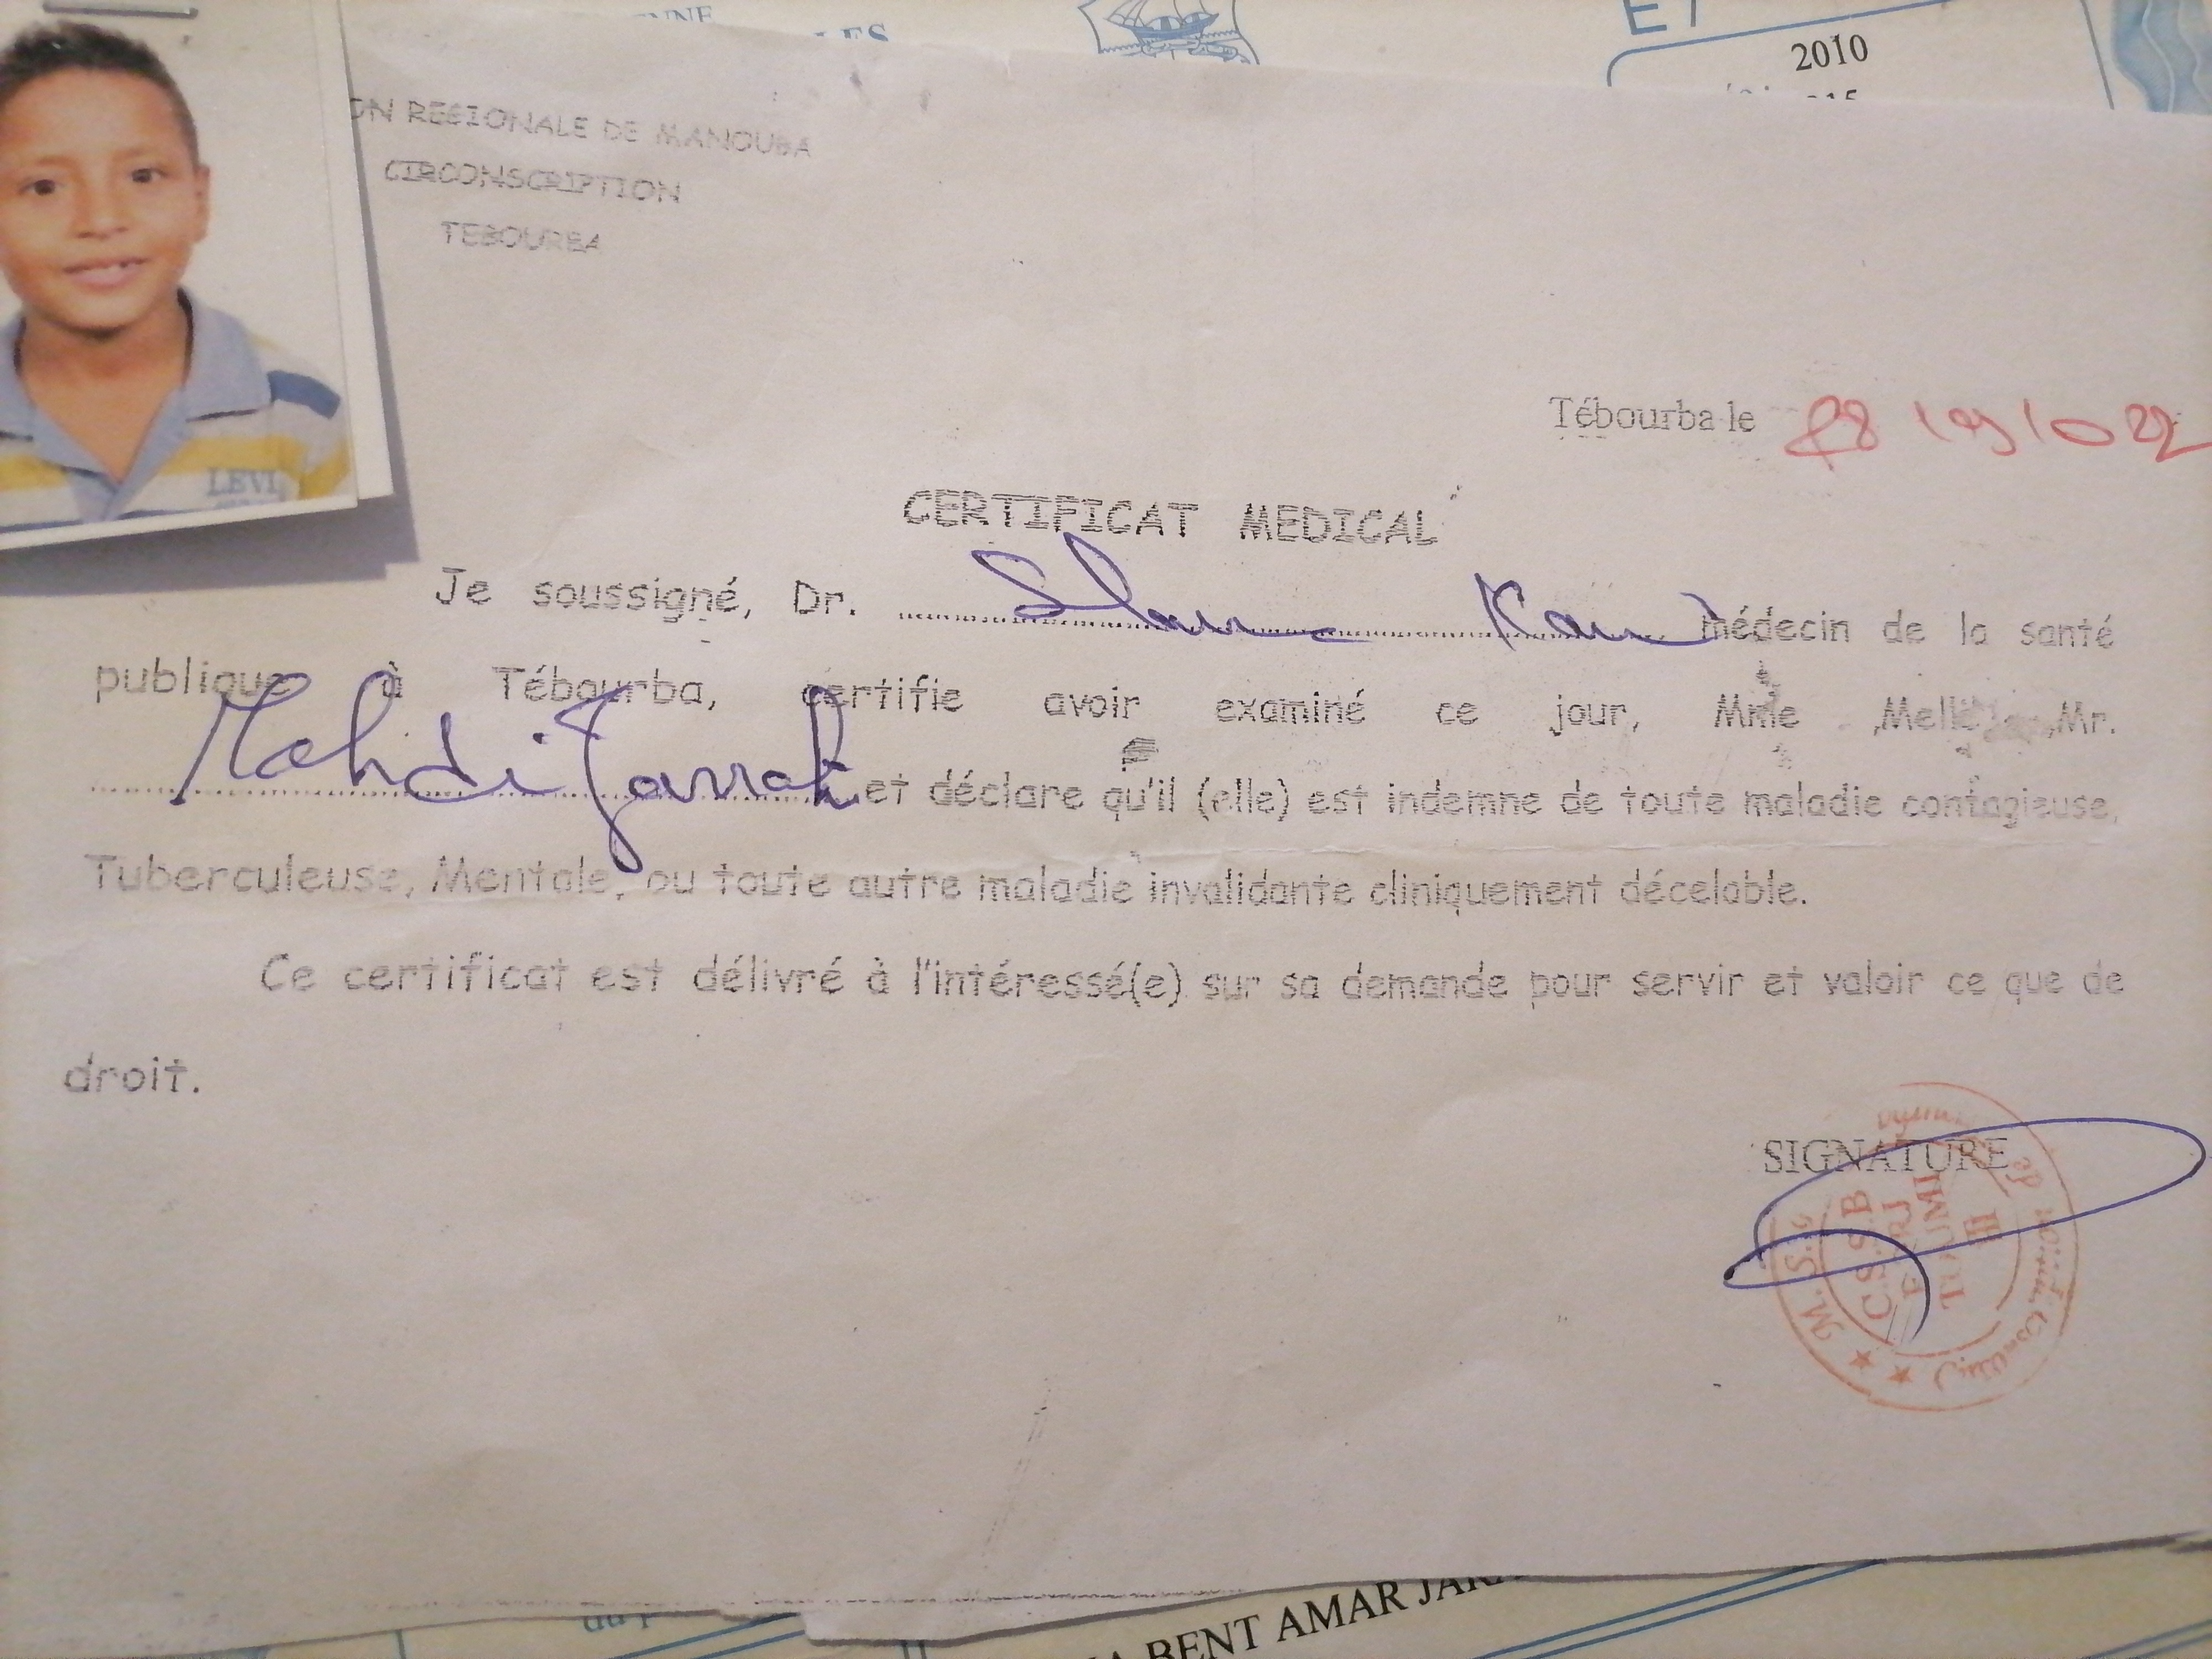 2010
ON REGIONALE DE MANOUBA
CIRCONSCRIPTION
TEBOURBA
LEVI
Tébourba le
CERTIFICAT MEDICAL
Je soussigné, Dr. médecin de la santé
publique à Tébourba, certifie avoir examiné ce jour, Mme ,Melle ,Mr.
Mahdi Jarrah et déclare qu'il (elle) est indemne de toute maladie contagieuse,
Tuberculeuse, Mentale, ou toute autre maladie invalidante cliniquement décelable.
Ce certificat est délivré à l'intéressé(e) sur sa demande pour servir et valoir ce que de
droit.
SIGNATURE
M. S.
C.S.S.B
III
BENT AMAR